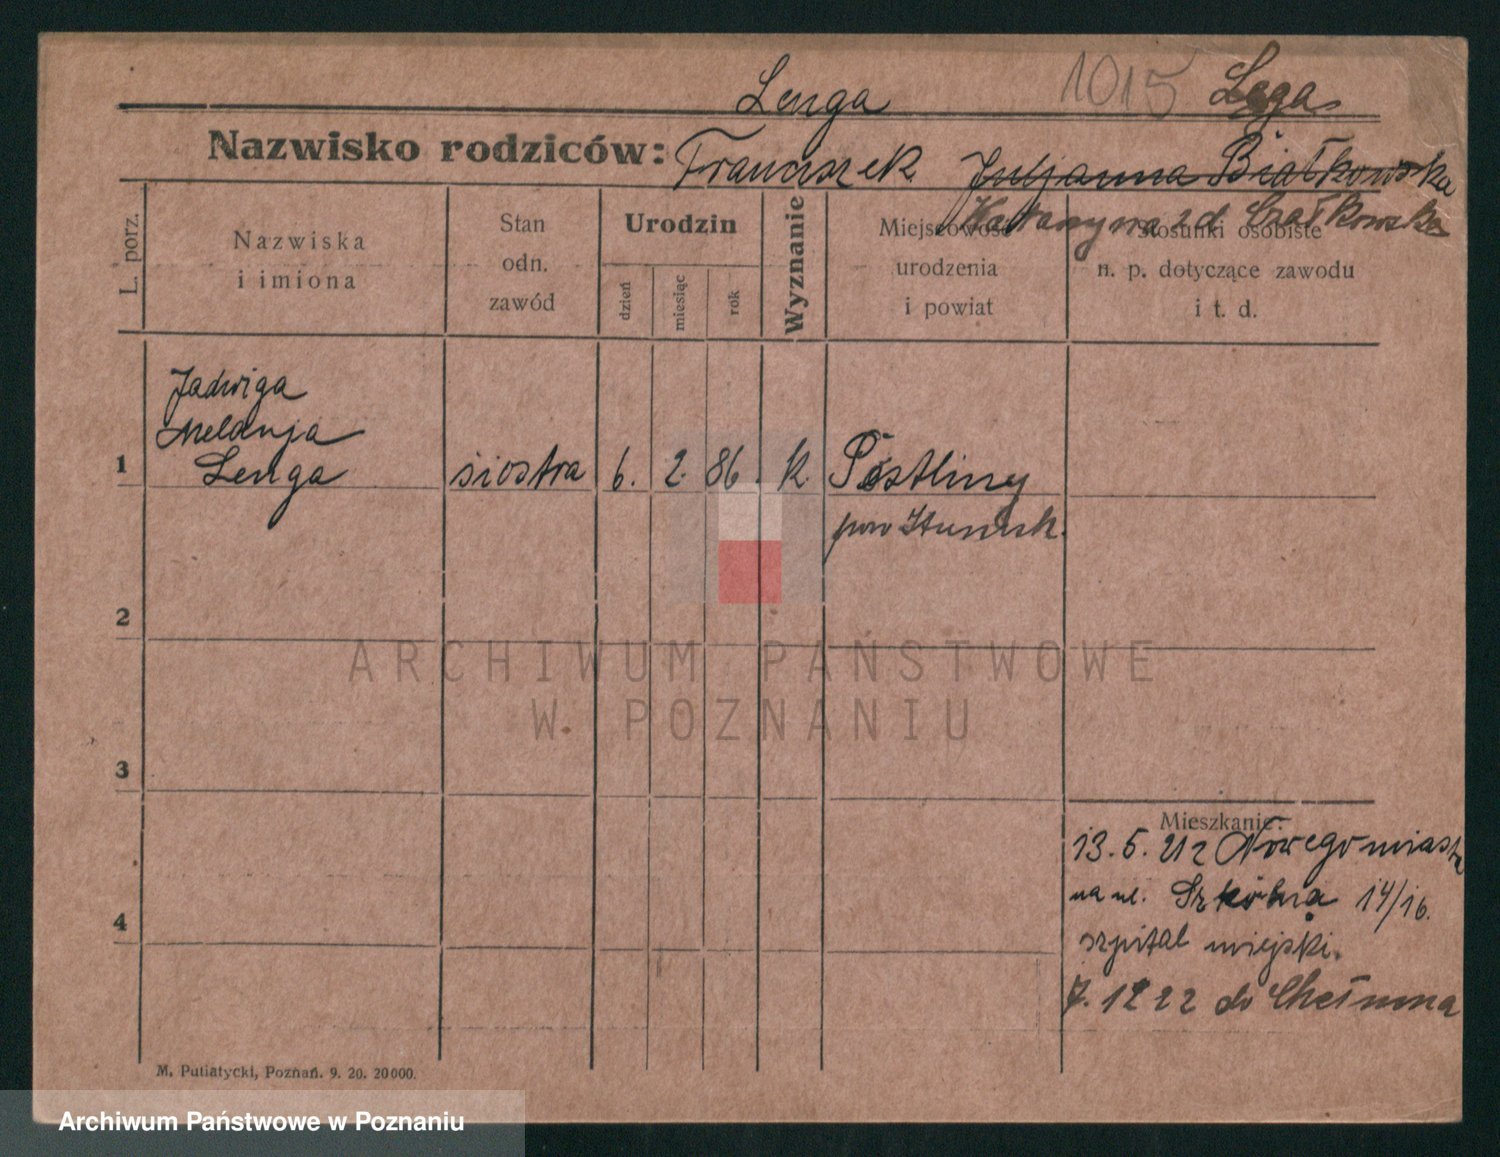 Lenga 1015 Lega
Nazwisko rodziców: Franciszek Juljanna Białkowska
Katarzyna zd. Czałkowska
L. porz.
Nazwiska
i imiona
Stan
odn.
zawód
Urodzin
dzień
miesiąc
rok
Wyznanie
Miejscowość
urodzenia
i powiat
Stosunki osobiste
n. p. dotyczące zawodu
i t. d.
Jadwiga
Melanja
1 Lenga siostra 6. 2. 86 k. Pestliny
pow
2
3
Mieszkanie:
13. 5. 21 z Nowegomiasta
na ul. Szkolna 14/16.
4
szpital miejski.
7. 12 22 do Chełmna
M. Putiatycki, Poznań. 9. 20. 20000.
ARCHIWUM PAŃSTWOWE
W POZNANIU
Archiwum Państwowe w Poznaniu